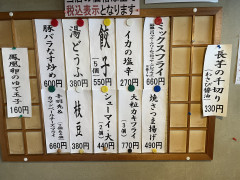 税込表示となります。
長芋の千切り
(わさび醤油)
330円
ミックスフライ
660円
焼きつま揚げ
490円
イカの塩辛
270円
大粒カキフライ
770円
餃子
(5個)
550円
シューマイ
440円
湯どうふ
380円
枝豆
380円
豚バラなす炒め
600円
660円
鳳凰卵のゆで玉子
160円